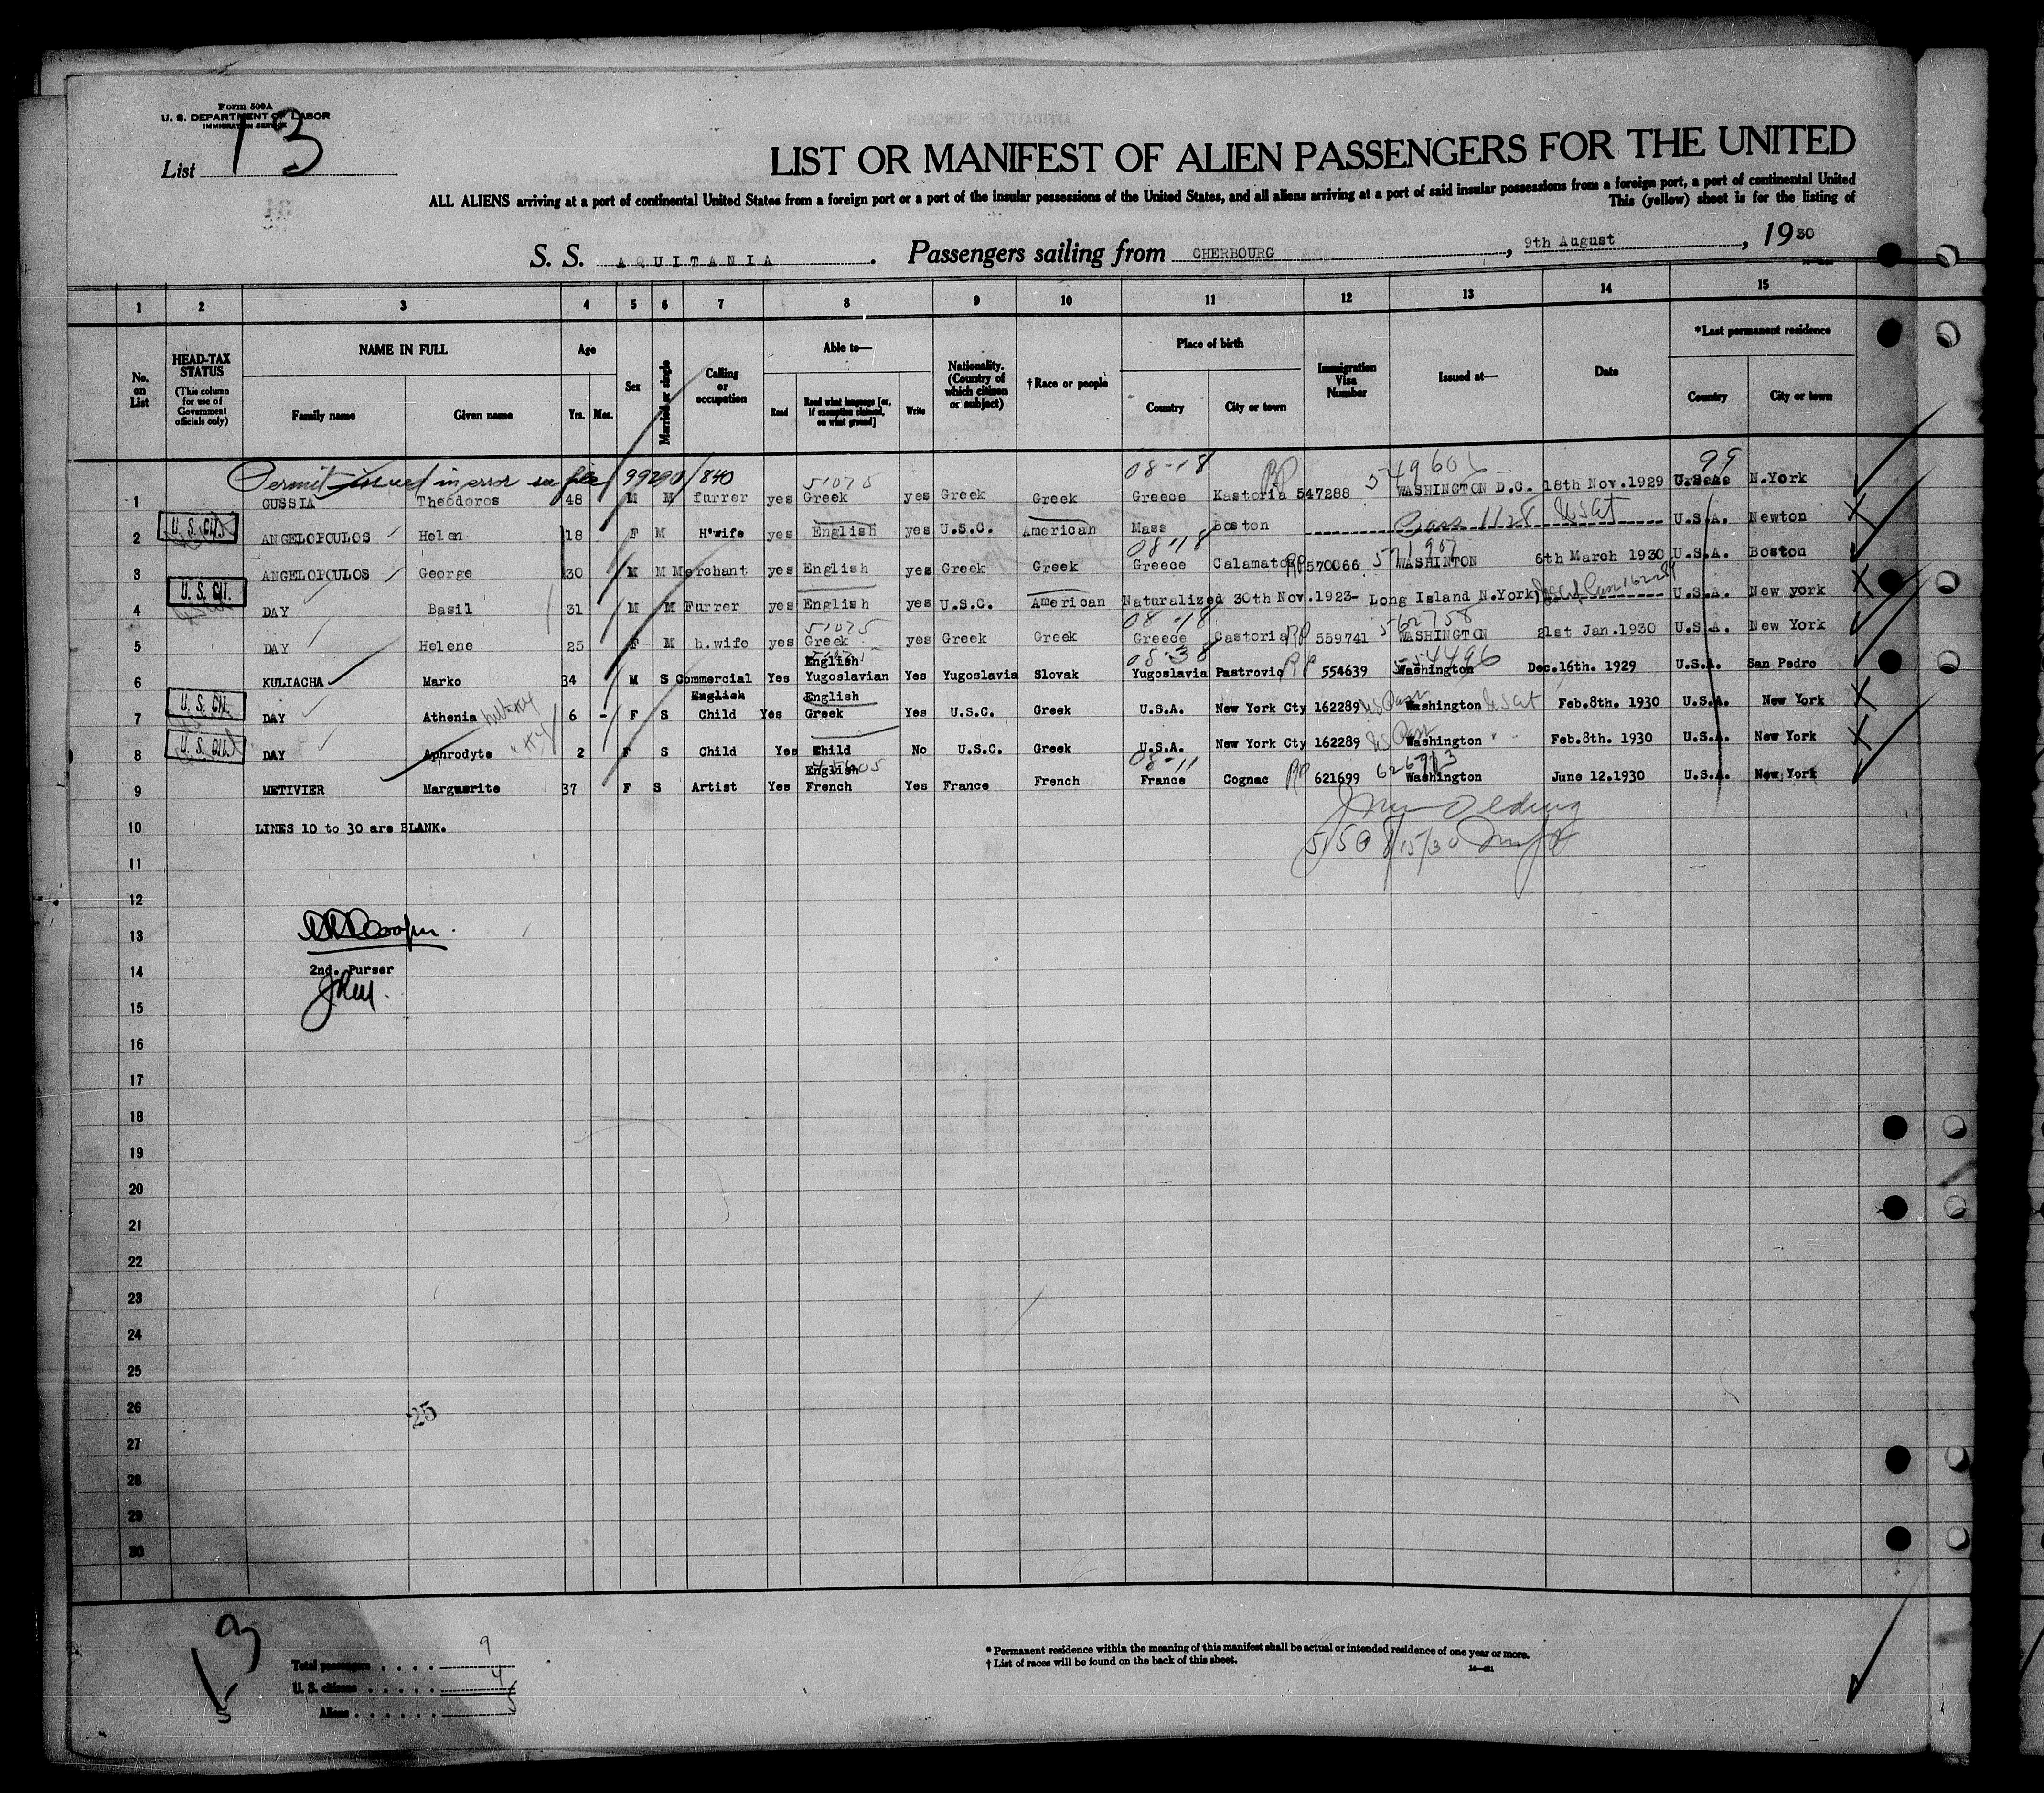 Form 500A
U. S. DEPARTMENT OF LABOR
IMMIGRATION SERVICE
List 13
LIST OR MANIFEST OF ALIEN PASSENGERS FOR THE UNITED
ALL ALIENS arriving at a port of continental United States from a foreign port or a port of the insular possessions of the United States, and all aliens arriving at a port of said insular possessions from a foreign port, a port of continental United
This (yellow) sheet is for the listing of
S. S. AQUITANIA . Passengers sailing from CHERBOURG , 9th August , 1930
1 2 3 4 5 6 7 8 9 10 11 12 13 14 15
No. on List
HEAD-TAX STATUS (This column for use of Government officials only)
NAME IN FULL
Family name Given name
Age
Yrs. Mos.
Sex
Married or single
Calling or occupation
Able to—
Read Read what language [or, if exemption claimed, on what ground] Write
Nationality. (Country of which citizen or subject)
†Race or people
Place of birth
Country City or town
Immigration Visa Number
Issued at—
Date
*Last permanent residence
Country City or town
Permit issued in error see file 99290/840 51075 08-18 RP 549601 99
1 GUSSIA Theodoros 48 M M furrer yes Greek yes Greek Greek Greece Kastoria 547288 WASHINGTON D.C. 18th Nov.1929 U.S.A. N.York
U. S. CIT.
2 ANGELOPOULOS Helen 18 F M H'wife yes English yes U.S.C. American Mass Boston U.S.A. Newton
08-18
3 ANGELOPOULOS George 30 M M Merchant yes English yes Greek Greek Greece Calamato RP 570066 571907 WASHINTON 6th March 1930 U.S.A. Boston
U. S. CIT.
4 DAY Basil 31 M M Furrer yes English yes U.S.C. American Naturalized 30th Nov.1923- Long Island N.York) U.S.A. New york
51075 08-18 562758
5 DAY Helene 25 F M h.wife yes Greek yes Greek Greek Greece Castoria RP 559741 WASHINGTON 21st Jan.1930 U.S.A. New York
English 08-38 554496
6 KULIACHA Marko 34 M S Commercial Yes Yugoslavian Yes Yugoslavia Slovak Yugoslavia Pastrovic RP 554639 Washington Dec.16th. 1929 U.S.A. San Pedro
U. S. CIT. English English
7 DAY Athenia 6 - F S Child Yes Greek Yes U.S.C. Greek U.S.A. New York Cty 162289 Washington Feb.8th. 1930 U.S.A. New York
U. S. CIT.
8 DAY Aphrodyte 2 F S Child Yes Ehild No U.S.C. Greek U.S.A. New York Cty 162289 Washington Feb.8th. 1930 U.S.A. New York
English 08-11 626913
9 METIVIER Marguerite 37 F S Artist Yes French Yes France French France Cognac RP 621699 Washington June 12.1930 U.S.A. New York
10 LINES 10 to 30 are BLANK.
11
12
13
2nd. Purser
14
15
16
17
18
19
20
21
22
23
24
25
26
25
27
28
29
30
9
5
Total passengers . . . . 9
U. S. citizens . . . . . 4
Aliens . . . . . . 5
* Permanent residence within the meaning of this manifest shall be actual or intended residence of one year or more.
† List of races will be found on the back of this sheet.